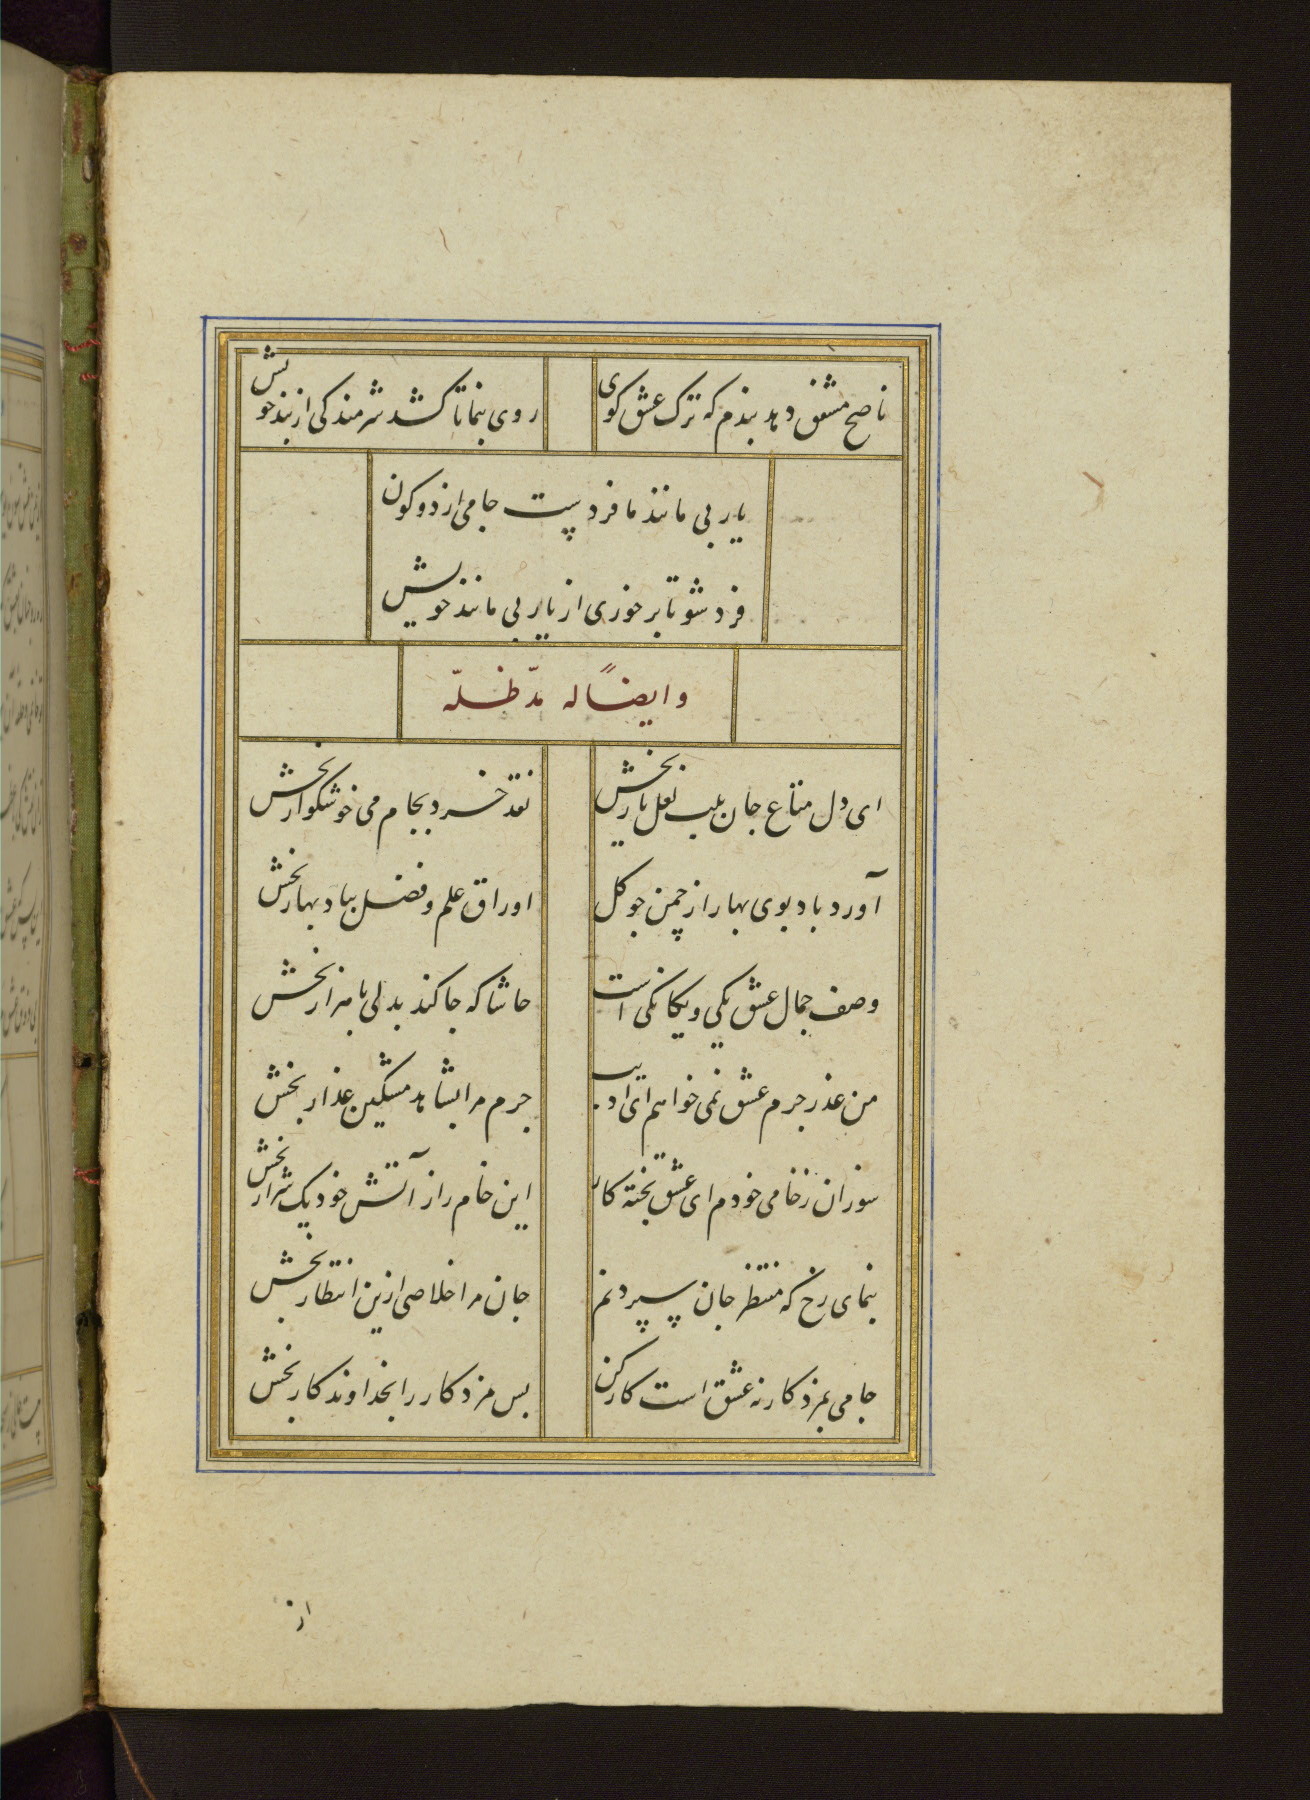 ناصح مشفق دهد بندم که ترک عشق کوی روی بنما تا کشد شرمندکی از بند خویش
یار بی مانند ما فردست جامی از دو کون
فرد شو تا برخوری از یار بی مانند خویش
وایضاً له مدّ ظلّه
ای دل متاع جان بلب لعل یار بخش نقد خرد بجام می خوشکوار بخش
آورد باد بوی بهار از چمن جو کل اوراق علم و فضل بباد بهار بخش
وصف جمال عشق یکی و یکانکی است حاشا که جا کند بدلی با هزار بخش
من عذر جرم عشق نمی خواهم ای ادیب جرم مرا بشاهد مشکین عذار بخش
سوزان ز خامی خودم ای عشق پخته کار این خام را ز آتش خود یک شرار بخش
بنمای رخ که منتظر جان سپردنم جان مرا خلاصی ازین انتظار بخش
جامی بمزد کار نه عشق است کار کن بس مزد کار را بخداوند کار بخش
از